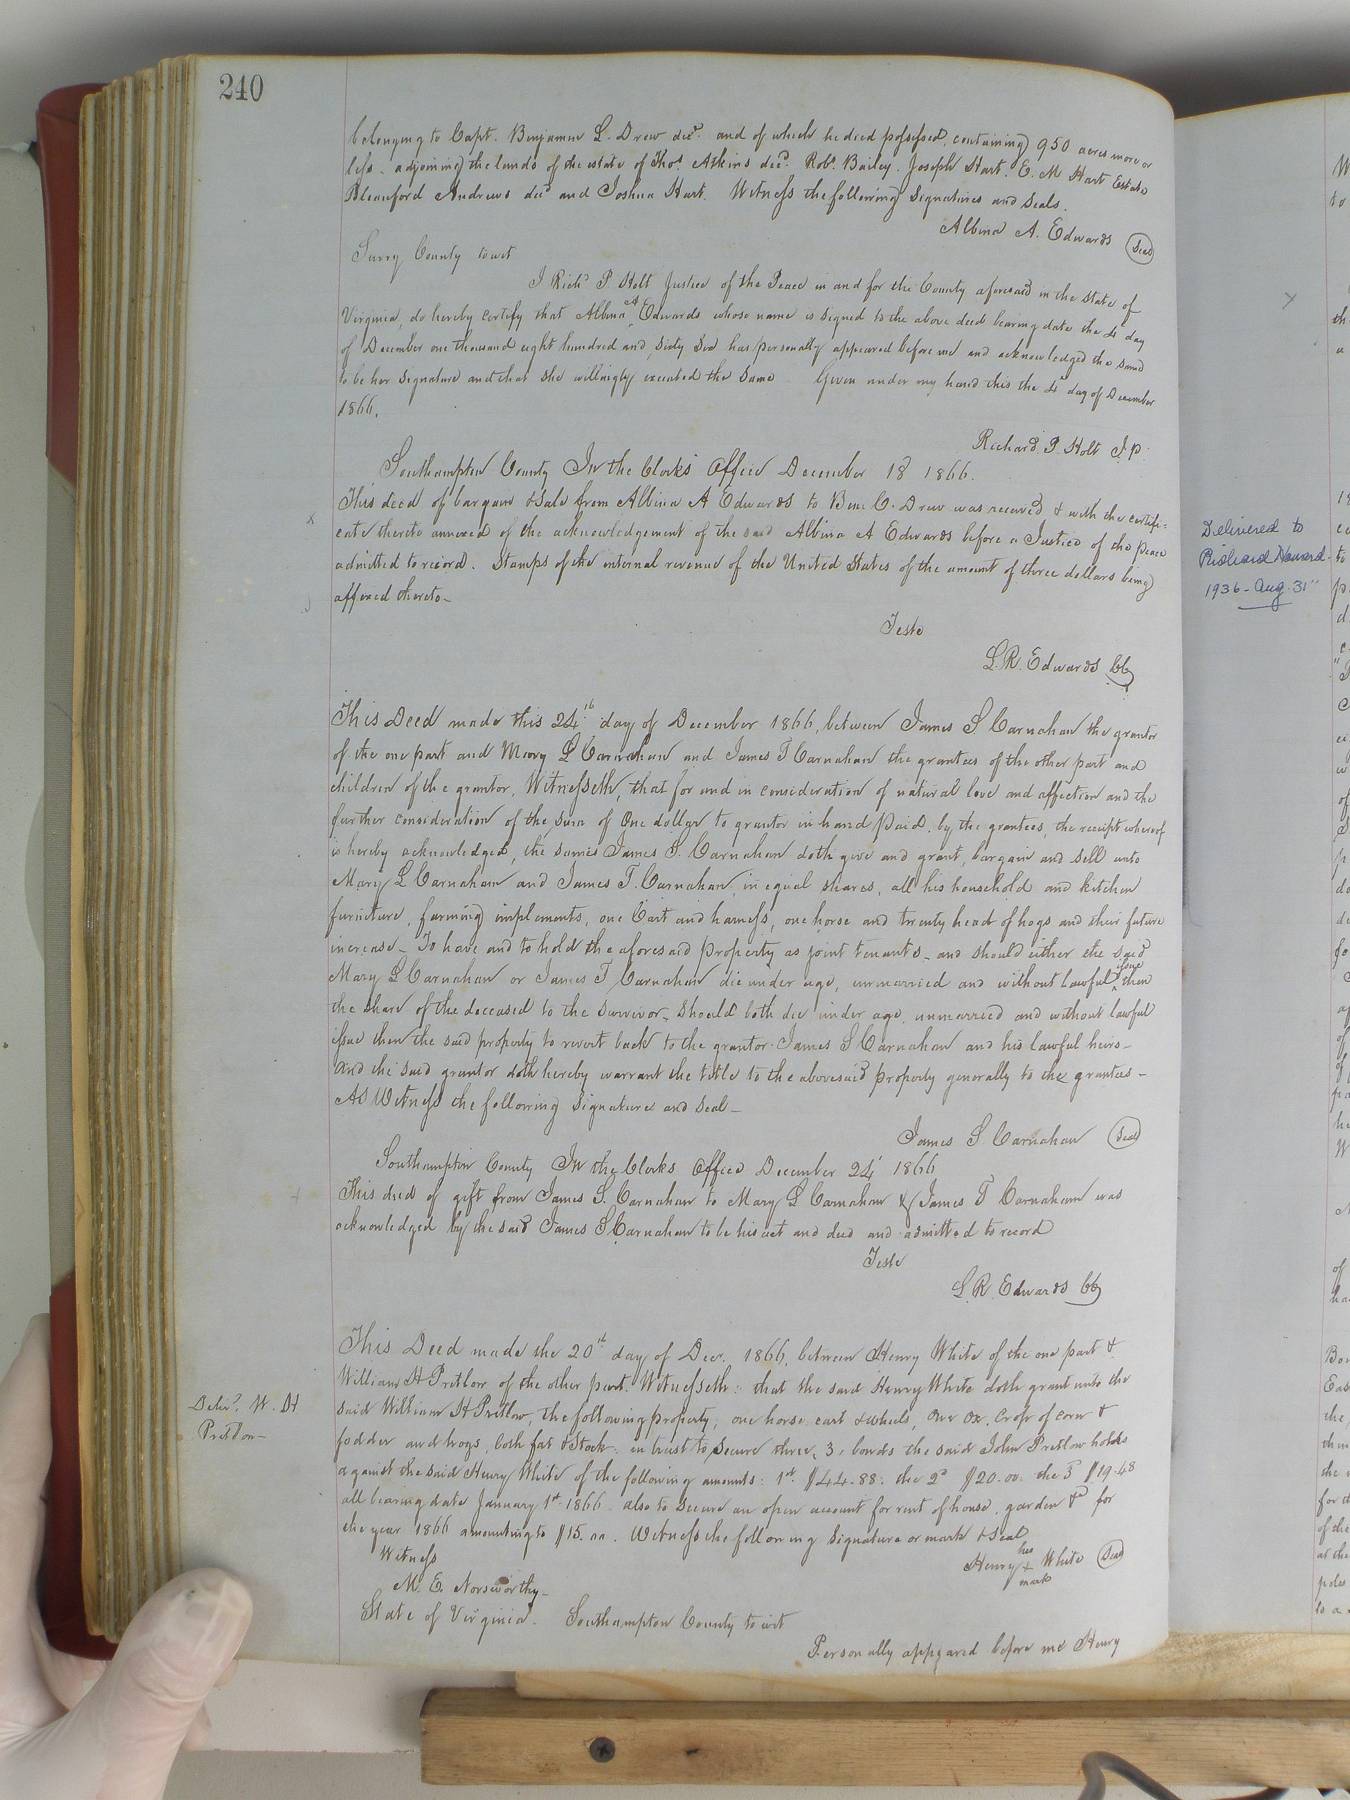 240
belonging to Capt. Benjamin L. Drew decd. and of which he died possessed, containing 950 acres more or
less - adjoining the lands of the estate of Thos. Atkins decd. Robt. Bailey. Joseph Hart. E. M Hart Estate
Andrews decd and Joshua Hart. Witness the following signatures and seals.
Albina A. Edwards Seal
Surry County to wit
I Richd P Holt Justice of the Peace in and for the County aforesaid in the State of
Virginia, do hereby certify that Albina A Edwards whose name is signed to the above deed bearing date the 4th day
of December one thousand eight hundred and sixty six has personally appeared before me and acknowledged the same
to be her signature and that she willingly executed the same Given under my hand this the 4th day of December
1866.
Richard P. Holt J. P.
Southampton County In the Clerk's Office December 18 1866.
This deed of bargain & sale from Albina A Edwards to Benj C. Drew was received & with the certifi=
cate thereto annexed of the acknowledgement of the said Albina A Edwards before a Justice of the Peace
admitted to record. Stamps of the internal revenue of the United States of the amount of three dollars being
affixed thereto -
Teste
L. R. Edwards CC
This Deed made this 24th day of December 1866, between James S. Carnahan the grantor
of the one part and Mary L Carnahan and James T Carnahan the grantees of the other part and
children of the grantor, Witnesseth, that for and in consideration of natural love and affection and the
further consideration of the sum of One dollar to grantor in hand paid, by the grantees, the receipt whereof
is hereby acknowledged, the James S. Carnahan doth give and grant, bargain and sell unto
Mary L Carnahan and James T. Carnahan, in equal shares, all his household and kitchen
furniture, farming implements, one Cart and harness, one horse and twenty head of hogs and their future
increase - To have and to hold the aforesaid property as joint tenants - and should either the said
Mary L Carnahan or James T Carnahan die under age, unmarried and without lawful issue then
the share of the deceased to the survivor. Should both die under age, unmarried and without lawful
issue then the said property to revert back to the grantor James S Carnahan and his lawful heirs -
and the said grantor doth hereby warrant the title to the abovesaid property generally to the grantees -
As Witness the following Signature and Seal -
James S. Carnahan Seal
Southampton County In the Clerks Office December 24' 1866
This deed of gift from James S. Carnahan to Mary L Carnahan & James T Carnahan was
acknowledged by the said James S Carnahan to be his act and deed and admitted to record
Teste
L R Edwards CC
This Deed made the 20th day of Decr. 1866, between Henry White of the one part &
William H Pretlow of the other part. Witnesseth: that the said Henry White doth grant unto the
said William H Pretlow, the following property, one horse cart & wheels, One Ox, Crop of corn &
fodder and hogs, both fat & Stock. in trust to secure three, 3, bonds the said John Pretlow holds
against the said Henry White of the following amounts: 1st $44.88. the 2d $20.00. the 3 $19.48
all bearing date January 1st 1866. also to secure an open account for rent of house, garden &c for
the year 1866 amounting to $15.00. Witness the following signature or mark & Seal
Witness
Henry his + mark White Seal
M. E. Norsworthy -
State of Virginia. Southampton County to wit
Personally appeared before me Henry
Delivd. W. H
Pretlow -
Delivered to
Richard
1936 - Aug. 31"